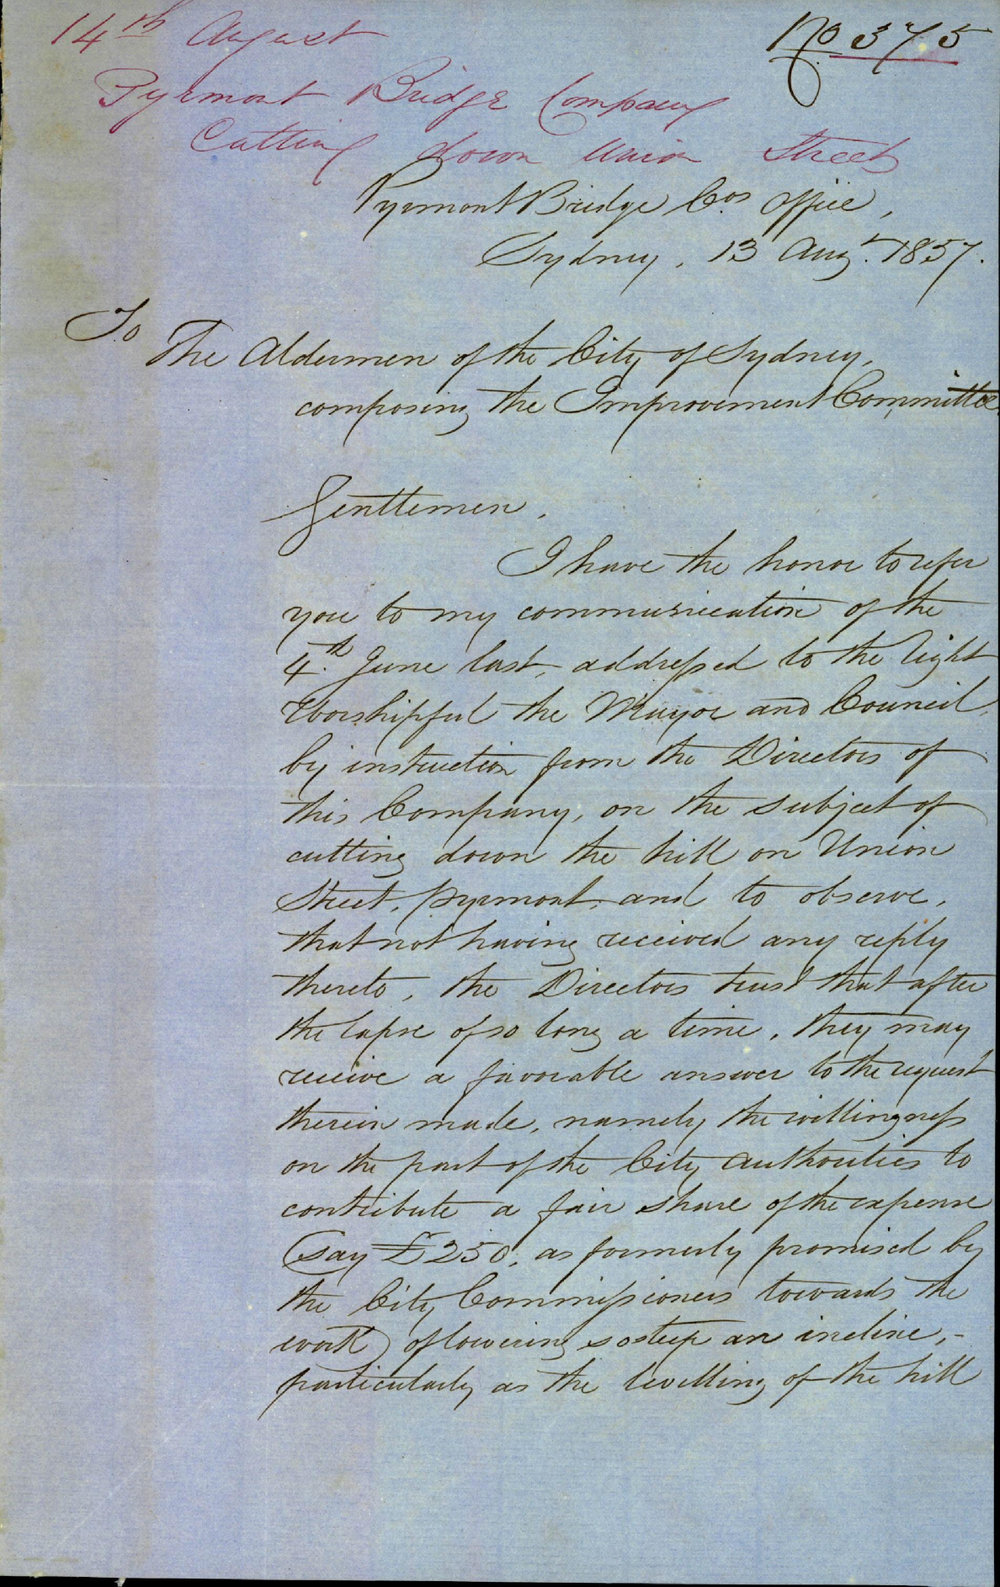 No 375
14th August
Pyrmont Bridge Company
Cutting down Union Street
Pyrmont Bridge Cos Office,
Sydney, 13 Augt. 1857.
To
The Aldermen of the City of Sydney,
composing the Improvement Committee.
Gentlemen,
I have the honor to refer
you to my communication of the
4th June last, addressed to the Right
Worshipful the Mayor and Council,
by instruction from the Directors of
this Company, on the subject of
cutting down the hill on Union
Street, Pyrmont, and to observe,
that not having received any reply
thereto, the Directors trust that after
the lapse of so long a time, they may
receive a favorable answer to the request
therein made, namely the willingness
on the part of the City Authorities to
contribute a fair share of the expense
(say £250, as formerly promised by
the City Commissioners towards the
work) of lowering so steep an incline,-
particularly as the levelling of the hill